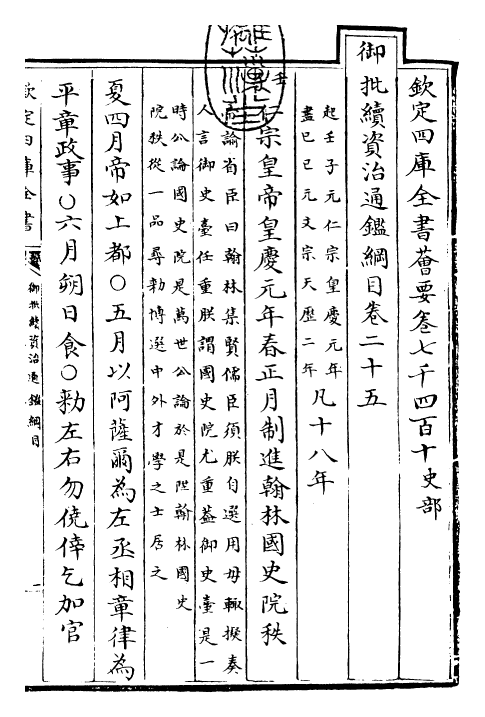 欽定四庫全書薈要卷七千四百十史部
御批續資治通鑑綱目卷二十五
起壬子元仁宗皇慶元年
盡巳巳元文宗天歷二年
凡十八年
仁宗皇帝皇慶元年春正月制進翰林國史院秩
諭省臣曰翰林集賢儒臣須朕自選用毋輒擬奏
人言御史臺任重朕謂國史院尤重葢御史臺是一
時公論國史院是萬世公論於是陞翰林國史
院秩從一品尋勅博選中外才學之士居之
夏四月帝如上都○五月以阿薩爾為左丞相章律為
平章政事○六月朔日食○勅左右勿僥倖乞加官
欽定四庫全書
御批續資治通鑑綱目
一